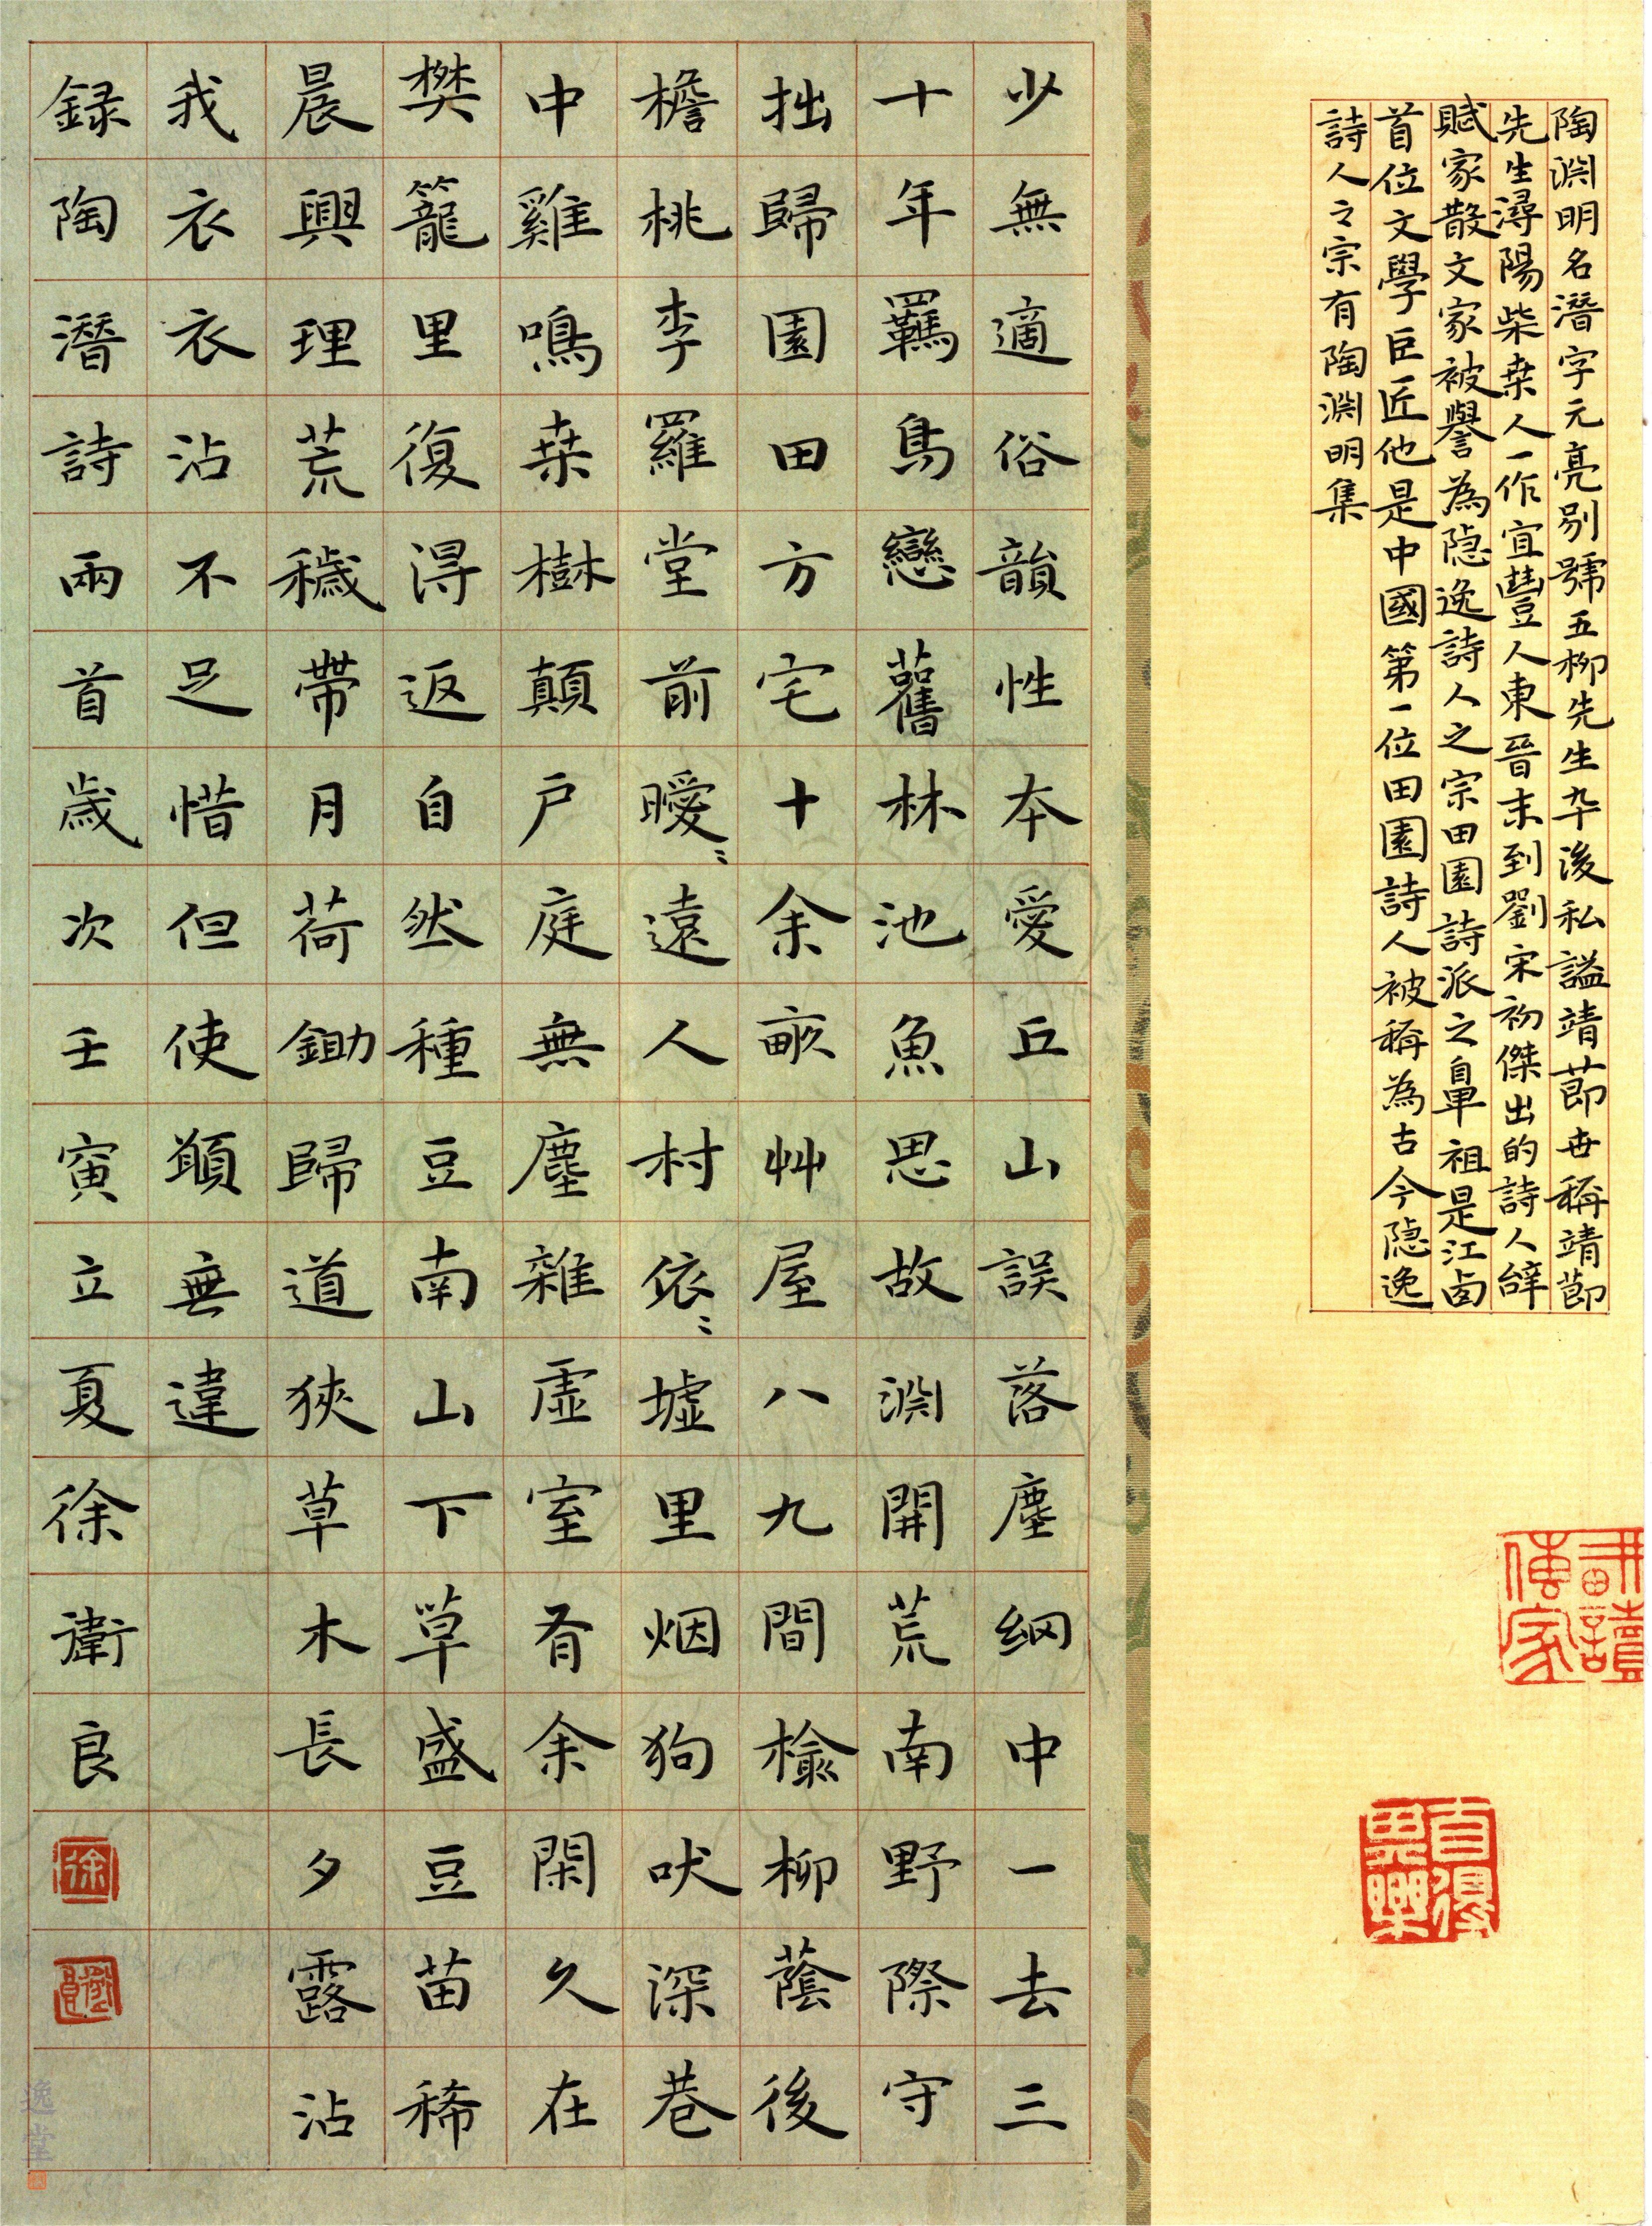 陶淵明名潛字元亮别號五柳先生卒後私謚靖節世稱靖節
先生潯陽柴桑人一作宜豐人東晉末到劉宋初傑出的詩人辭
賦家散文家被譽為隐逸詩人之宗田園詩派之鼻祖是江西
首位文學巨匠他是中國第一位田園詩人被稱為古今隐逸
詩人之宗有陶淵明集
耕讀傳家
自得其樂
少無適俗韻性本愛丘山誤落塵網中一去三
十年羈鳥戀舊林池魚思故淵開荒南野際守
拙歸園田方宅十余畝艸屋八九間榆柳蔭後
檐桃李羅堂前曖〻遠人村依〻墟里烟狗吠深巷
中雞鳴桑樹顛户庭無塵雜虛室有余閑久在
樊籠里復得返自然種豆南山下草盛豆苗稀
晨興理荒穢帶月荷鋤歸道狹草木長夕露沾
我衣衣沾不足惜但使願無違
録陶潛詩兩首歲次壬寅立夏徐衛良
徐
衛良
逸堂